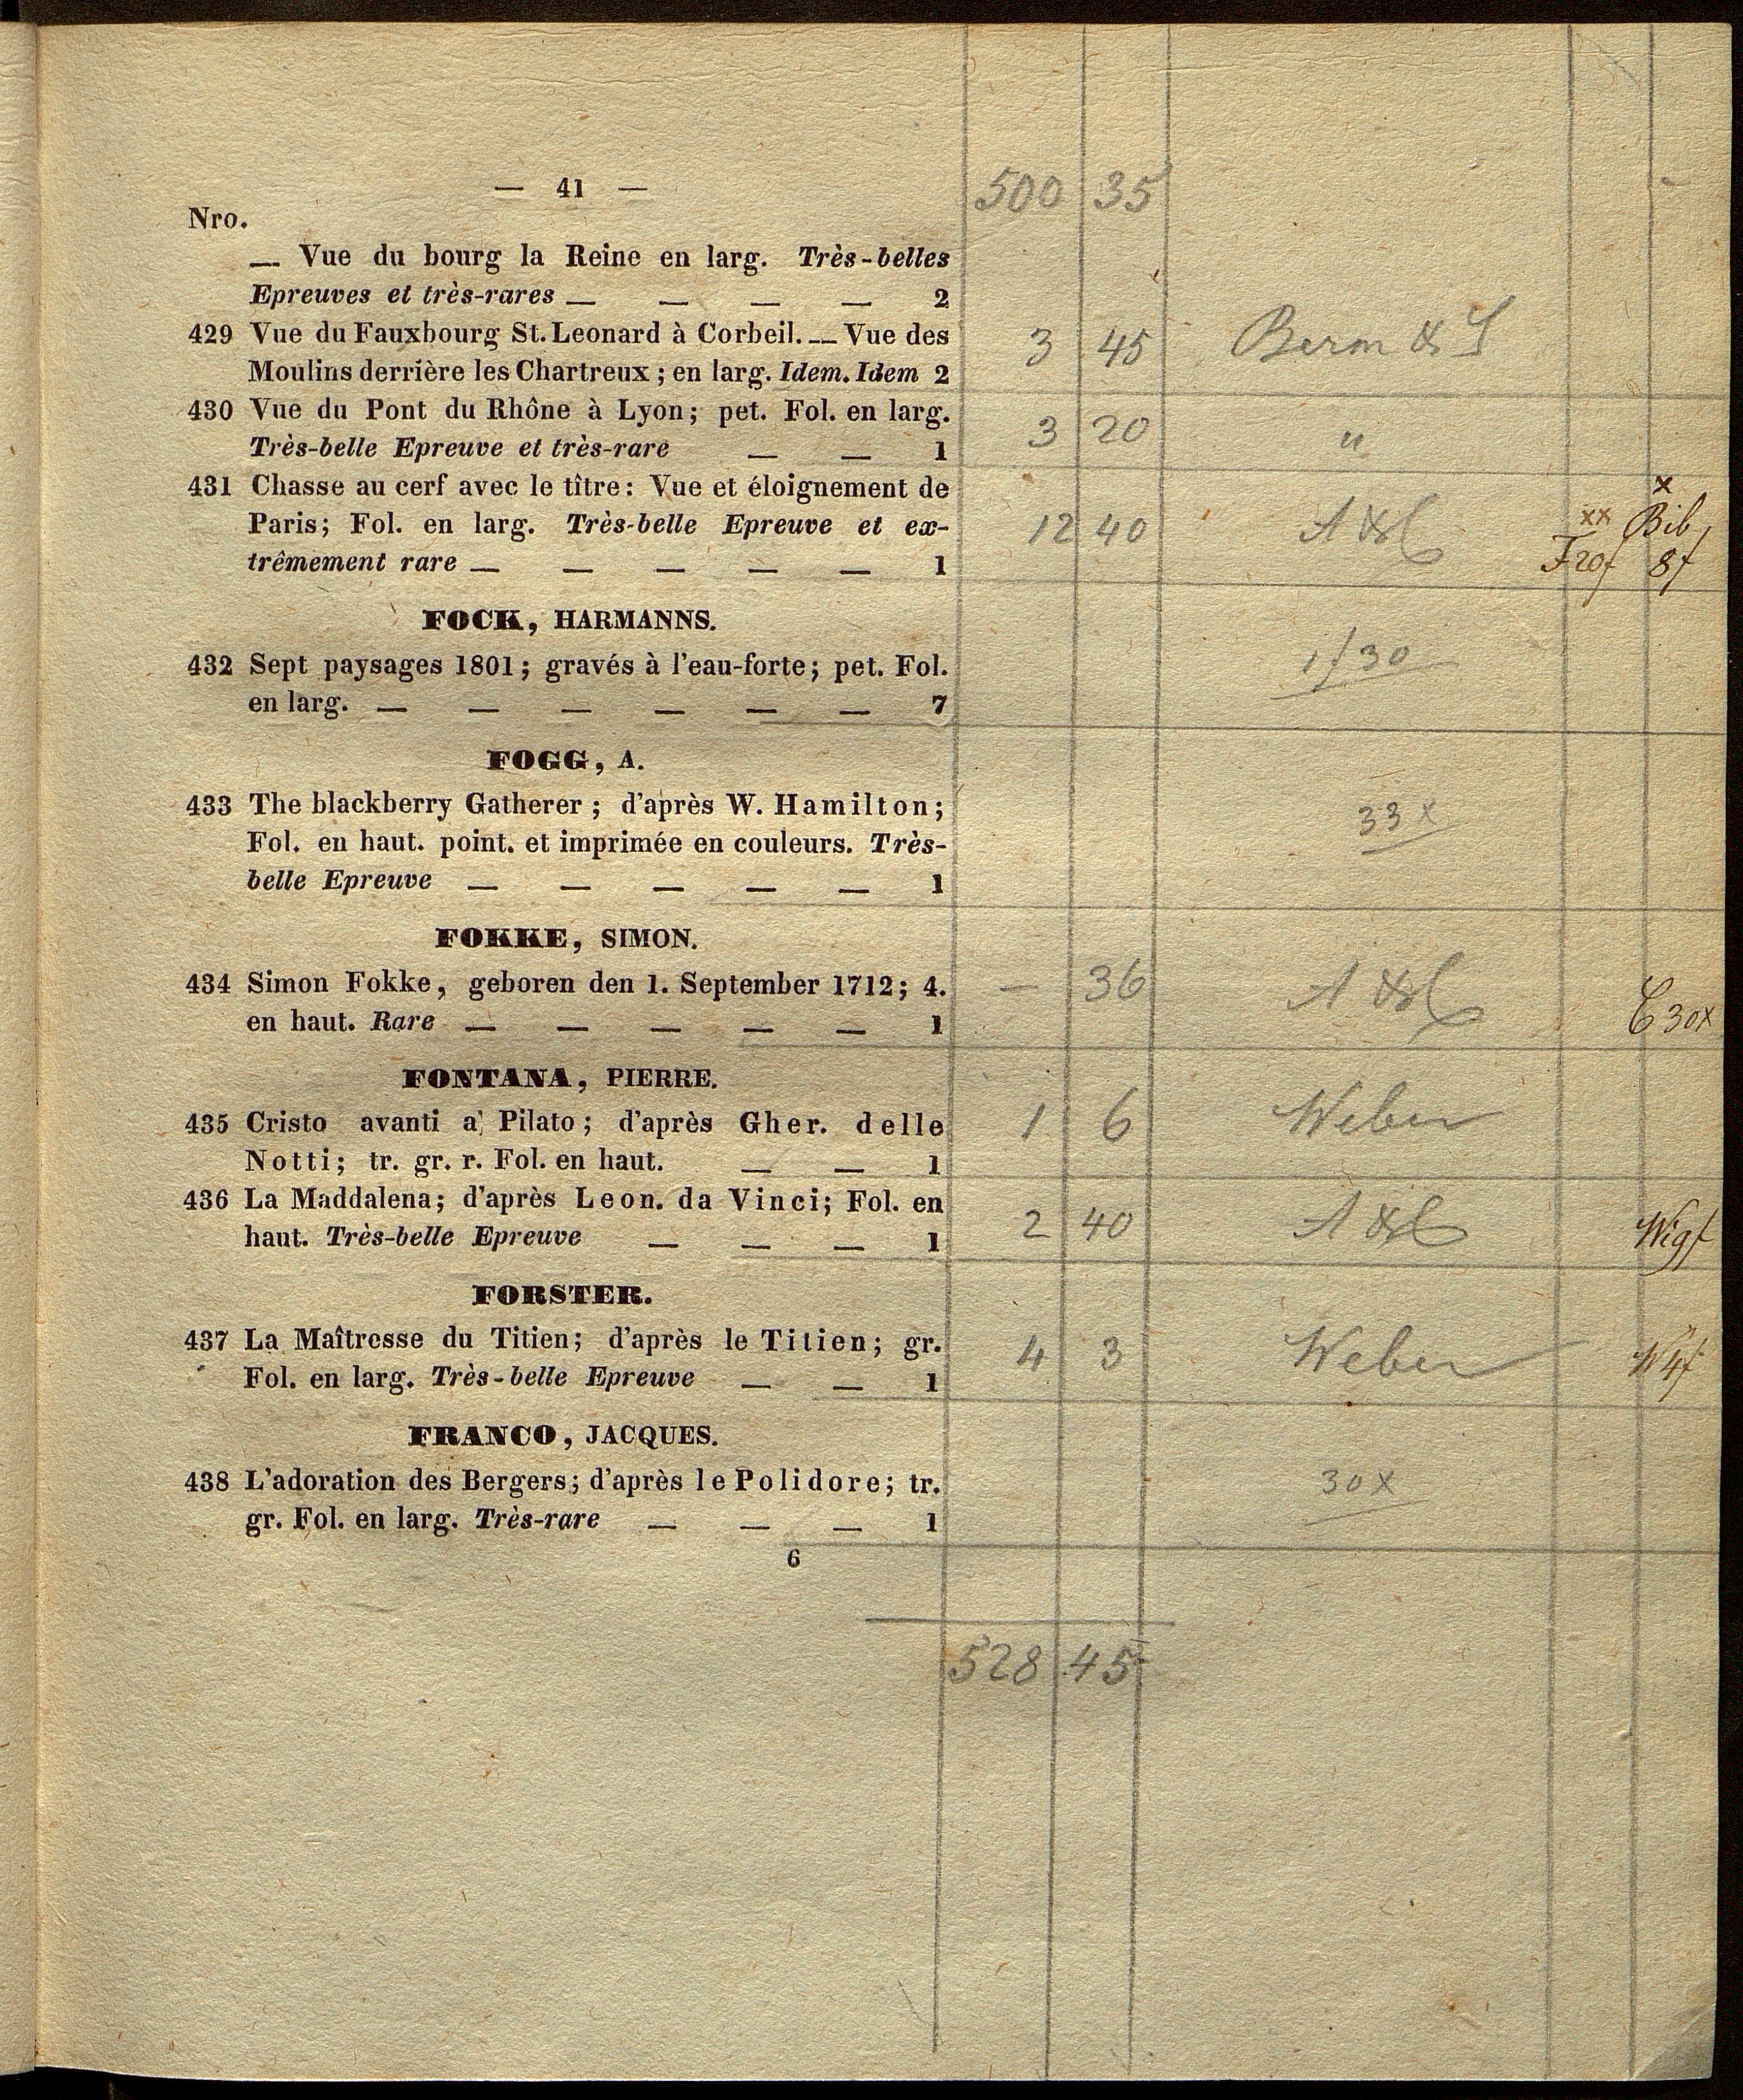 — 41 —
500 35
Nro.
— Vue du bourg la Reine en larg. Très-belles
Epreuves et très-rares — — — — 2
429 Vue du Fauxbourg St. Leonard à Corbeil. — Vue des
3 45 Berm & S
Moulins derrière les Chartreux ; en larg. Idem. Idem 2
430 Vue du Pont du Rhône à Lyon; pet. Fol. en larg.
3 20 "
Très-belle Epreuve et très-rare — — 1
431 Chasse au cerf avec le tître: Vue et éloignement de
x
Paris; Fol. en larg. Très-belle Epreuve et ex-
12 40 A & C xx Bib
trêmement rare — — — — — 1
F 20f 8f
FOCK, HARMANNS.
432 Sept paysages 1801; gravés à l'eau-forte; pet. Fol.
1f 30
en larg. — — — — — — 7
FOGG, A.
433 The blackberry Gatherer ; d'après W. Hamilton;
33 x
Fol. en haut. point. et imprimée en couleurs. Très-
belle Epreuve — — — — — 1
FOKKE, SIMON.
434 Simon Fokke, geboren den 1. September 1712; 4.
— 36 A & C
en haut. Rare — — — — — 1
C 30x
FONTANA, PIERRE.
435 Cristo avanti a' Pilato; d'après Gher. delle
1 6 Weber
Notti; tr. gr. r. Fol. en haut. — — 1
436 La Maddalena; d'après Leon. da Vinci; Fol. en
2 40 A & C
haut. Très-belle Epreuve — — — 1
FORSTER.
437 La Maîtresse du Titien; d'après le Titien; gr.
4 3 Weber W 4f
Fol. en larg. Très-belle Epreuve — — 1
FRANCO, JACQUES.
438 L'adoration des Bergers; d'après le Polidore; tr.
30 x
gr. Fol. en larg. Très-rare — — — 1
6
528 45